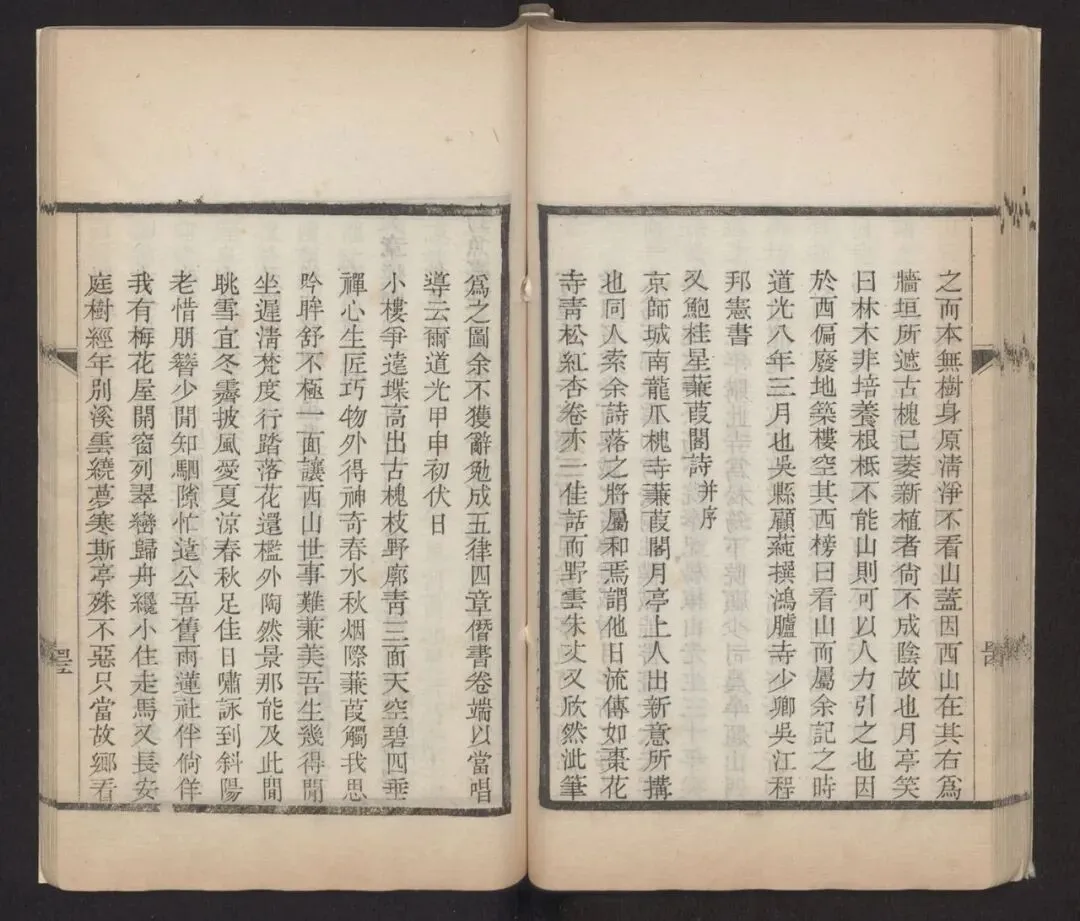 之而本無樹身原淸淨不看山蓋因西山在其右爲
牆垣所遮古槐已萎新植者尙不成陰故也月亭笑
曰林木非培養根柢不能山則可以人力引之也因
於西偏廢地築樓空其西榜曰看山而屬余記之時
道光八年三月也吳縣顧蒓撰鴻臚寺少卿吳江程
邦憲書
又鮑桂星蒹葭閣詩并序
京師城南龍爪槐寺蒹葭閣月亭上人出新意所搆
也同人索余詩落之將屬和焉謂他日流傳如棗花
寺靑松紅杏卷亦一佳話而野雲朱丈又欣然泚筆
爲之圖余不獲辭勉成五律四章僭書卷端以當唱
導云爾道光甲申初伏日
小樓爭遠堞高出古槐枝野廓靑三面天空碧四垂
禪心生匠巧物外得神奇春水秋烟際蒹葭觸我思
吟眸舒不極一面讓西山世事難兼美吾生幾得閒
坐遲淸梵度行踏落花還檻外陶然景那能及此間
眺雪宜冬霽披風愛夏涼春秋足佳日嘯詠到斜陽
老惜朋簪少閒知駟隙忙遠公吾舊雨蓮社伴倘佯
我有梅花屋開窗列翠巒歸舟纔小住走馬又長安
庭樹經年別溪雲繞夢寒斯亭殊不惡只當故鄕看